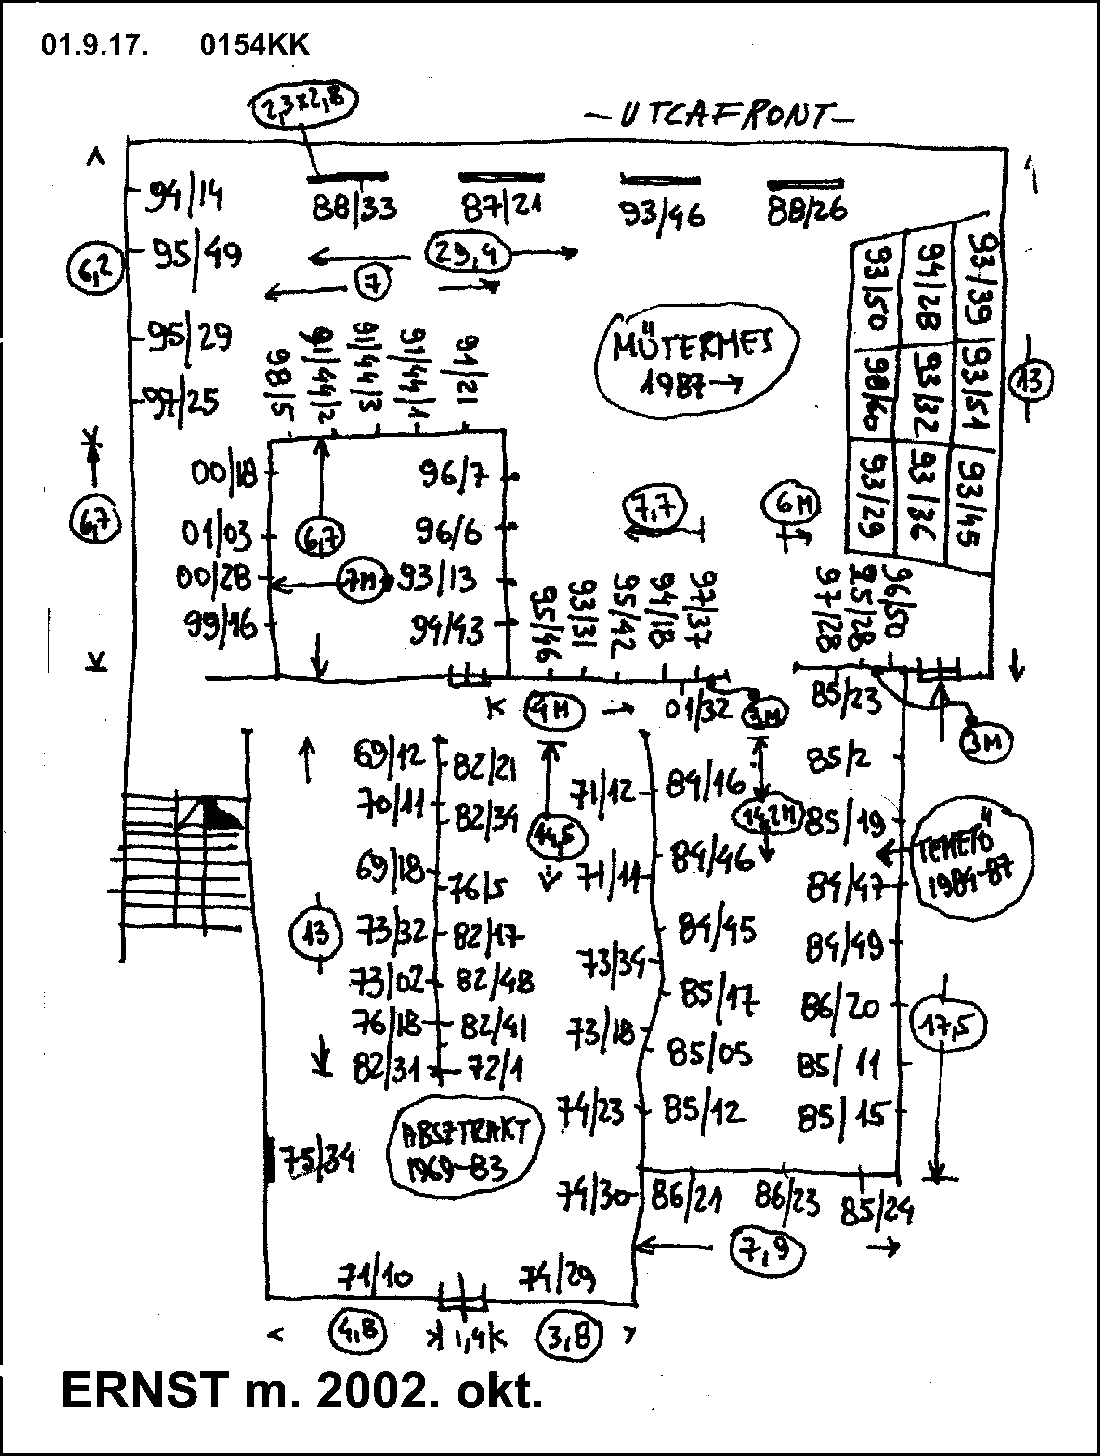 01.9.17. 0154KK
2,3x2,8
- UTCAFRONT -
94/14
88/33
87/21
93/46
88/26
95/49
6,2
29,4
7
95/29
97/25
98/5
91/44/2
91/44/3
91/44/1
91/21
MŰTERMES
1987→
93/50
94/28
93/39
98/60
93/32
93/51
93/29
93/36
93/45
13
00/18
96/7
6,7
01/03
6,7
96/6
00/28
7M
93/13
99/16
94/43
7,7
6M
95/46
93/31
95/42
94/18
97/37
97/28
85/28
96/50
4M
01/32
3M
85/23
3M
69/12
82/21
71/12
84/16
85/2
70/11
82/34
14,5
14,2M
85/19
TEMETŐ
1984-87
69/18
76/5
71/11
84/46
84/47
13
73/32
82/17
84/45
84/49
73/02
82/48
73/34
85/17
86/20
17,5
76/18
82/41
73/18
85/05
85/11
82/31
72/1
74/23
85/12
85/15
75/34
ABSZTRAKT
1969-83
74/30
86/21
86/23
85/24
7,9
71/10
74/29
4,8
1,4
3,8
ERNST m. 2002. okt.